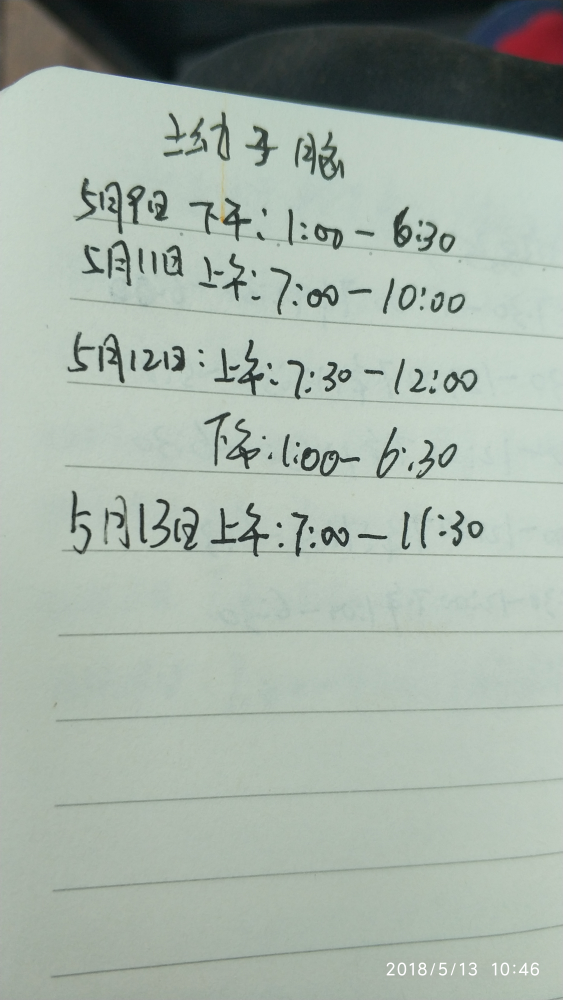 5月9日 下午:1:00-6:30
5月11日 上午:7:00-10:00
5月12日:上午:7:30-12:00
下午:1:00-6:30
5月13日上午:7:00-11:30
2018/5/13 10:46